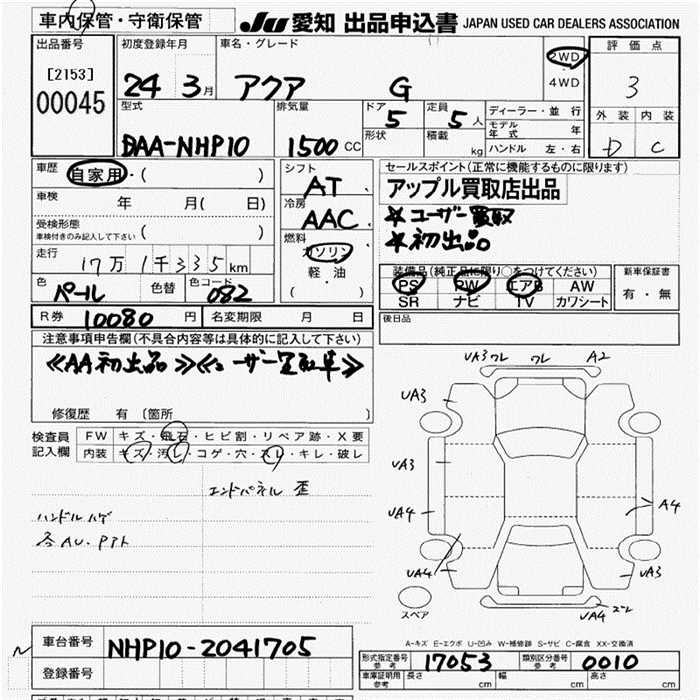 車内保管・守衛保管 JU 愛知 出品申込書 JAPAN USED CAR DEALERS ASSOCIATION
出品番号 初度登録年月 車名・グレード 2WD 評価点
[2153] 24 3月 アクア G 4WD 3
00045 型式 排気量 ドア 定員 ディーラー・並行 外装 内装
5 5人 モデル年式 年
DAA-NHP10 1500CC 形状 積載 kg ハンドル 左・右 D C
車歴 自家用・( ) シフト セールスポイント(正常に機能するものに限ります)
AT アップル買取店出品
車検 年 月( 日) 冷房 ☆ユーザー買取
受検形態 AAC ☆初出品
車検付きのみ記入して下さい ( )
走行 17万1千335km 燃料 ガソリン 装備品(純正品に限り○をつけてください) 新車保証書
色 パール 色替 色コード 082 軽油 PS PW エアB AW 有・無
( ) SR ナビ TV カワシート
R券 10080円 名変期限 月 日 後日品
注意事項申告欄(不具合内容等は具体的に記入して下さい)
≪AA初出品≫≪ユーザー買取車≫
修復歴 有 〔箇所 〕
検査員 FW キズ・飛石・ヒビ割・リペア跡・X要
記入欄 内装 キズ・汚レ・コゲ・穴・スレ・キレ・破レ
エンドパネル 歪
ハンドルハゲ
各AU・PAト
UA3 ワレ ワレ A2
UA3
UA3
UA4 A4
UA4 UA3
UA4
スペア
A-キズ E-エクボ U-凹み W-補修跡 S-サビ C-腐食 XX-交換済
車台番号 NHP10-2041705
形式指定番号 参考 17053 類別区分番号 参考 0010
登録番号 車庫証明用 参考 長さ cm 幅 cm 高さ cm